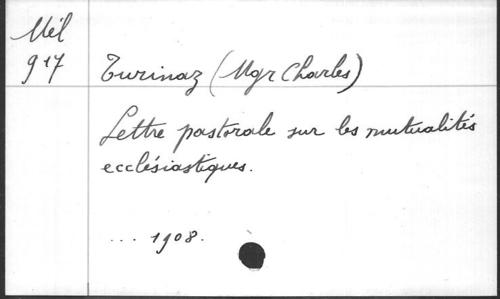 Mél
917
Turinaz (Mgr Charles)
Lettre pastorale sur les mutualités
ecclésiastiques.
... 1908.